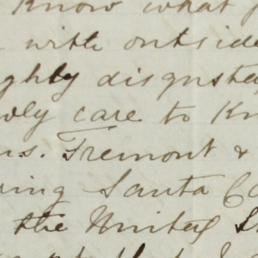 Know what
with outside
ghly disgusted
ly care to Kn
ns. Fremont &
ring Santa C
the United S